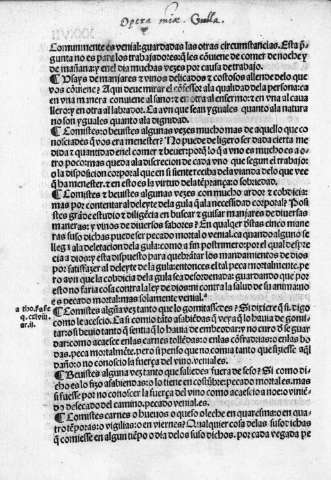 Opera miæ. Gulla.
Comunmente es venial: guardadas las otras circunstancias. Esta p̃
gunta no es para los trabajadores: q̃ les cõuiene de comer de noche y
de mañana: y en el dia muchas vezes por causa de trabajo.
¶ Usays de manjares ⁊ vinos delicados ⁊ costosos allende delo que
vos cõuiene? Aqui deue mirar el cõfessor ala qualidad dela persona: ca
en vna manera conuiene al sano: ⁊ en otra al enfermo: ⁊ en vna al caua
llero: y en otra al labrador. Ca avn que sean yguales quanto ala natura
no son yguales quanto ala dignidad.
¶ Comistes: o beuistes algunas vezes mucho mas de aquello que co
nosciades q̃ vos era menester? No puede de ligero ser dada cierta me
dida ⁊ quantidad enel comer ⁊ beuer: porq̃ lo q̃ a vno es mucho es a o
tro poco: mas queda ala discrecion de cada vno que segun el trabajo:
o la disposicion corporal que en si siente reciba dela vianda delo que vee
q̃ ha menester. ⁊ en esto es la virtud dela tẽprança: o sobriedad.
¶ Comistes ⁊ beuistes algunas vezes con mucho ardor ⁊ cobdicia:
mas por contentar al deleyte dela gula q̃ ala necessidad corporal? Posi
stes grã de estudio ⁊ diligẽcia en buscar ⁊ guisar manjares de diuersas
maneras: y vinos de diuersos sabores? En qualquier destas cinco mane
ras suso dichas puede ser pecado mortal o venial. ca quando alguno se
llega ala delectacion dela gula: como a fin postrimero: por el qual despre
cia a dios: y esta dispuesto para quebrãtar los mandamientos de dios
por satisfazer al deleyte dela gula: entonces el tal peca mortalmẽte. pe
ro avn que la cobdicia dela gula sea desordenada: guardando que por
esto no faria cosa contra la ley de dios: ni contra la salud de su anima: no
es pecado mortal: mas solamente venial.ᵃ
a tho. sa. se
q. cxlviij.
ar. ij.
¶ Comistes algũa vez tanto que lo gomitassedes? Si dixere q̃ si. digo
como le acescio. Ca si comio tãto a sabiẽdas q̃ veya q̃ lo hauia de gomi
tar: o si beuio tanto q̃ sentia q̃ lo hauia de embeodar: y no curo d̃ se guar
dar: como acaesce enlas carnes tolledas: o enlas cõfrarias: o enlas bo
das. peca mortalmẽte. pero si penso que no comia tanto que se le fiziesse
daño: o no conoscio la fuerça del vino. venial es.
¶ Beuistes alguna vez tanto que saliedes fuera de seso? Si como di
cho es lo fizo a sabiendas: o lo tiene en costũbre: pecado mortal es. mas
si fuesse por no conoscer la fuerça del vino como acaescio a noe: o vinie
do desecado del camino. pecado venial es.
¶ Comistes carnes o hueuos o queso o leche en quaresma: o en qua
tro tẽporas: o vigilias: o en viernes? Qualquier cosa delas suso dichas
q̃ comiesse en algun tiẽpo o dia delos suso dichos. por cada vegada pe